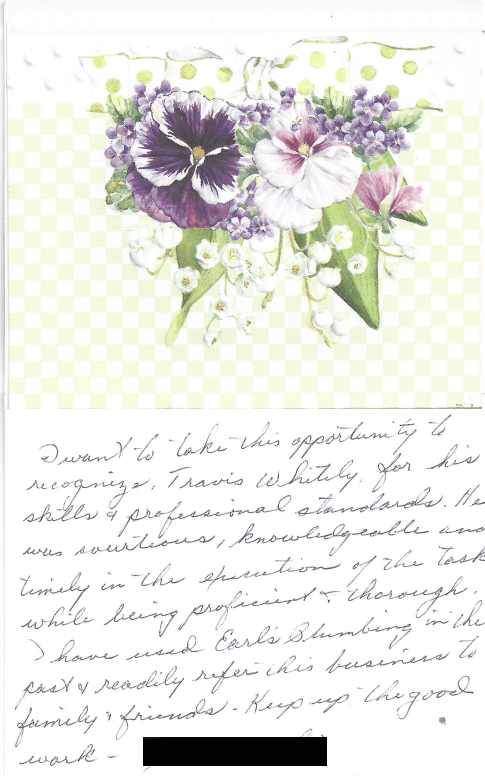 I want to take this opportunity to
recognize, Travis Whitely, for his
skills & professional standards. He
was courtious, knowledgeable and
timely in the execution of the task
while being proficient & thorough.
I have used Earl's Plumbing in the
past & readily refer this business to
family & friends - Keep up the good
work -